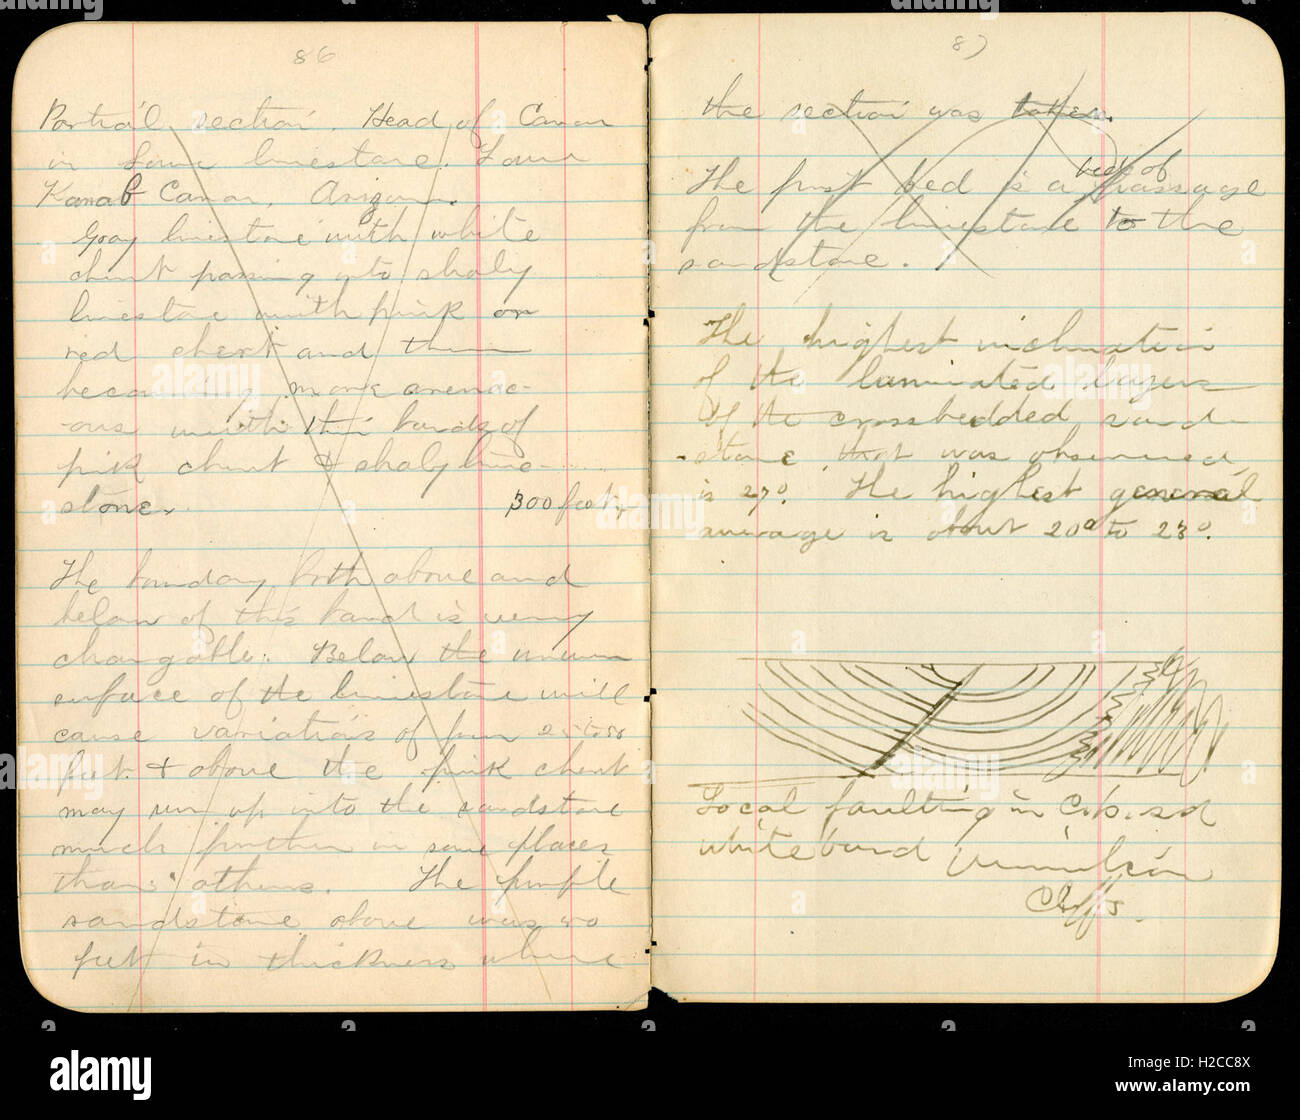 86
Partial section. Head of Canon
in Lower limestone. Lower
Kanab Canon, Arizona.
Gray limestone with white
chert passing into shaly
limestone with pink or
red chert and then
becoming more arenac-
-ous with thin bands of
pink chert & shaly lime-
stone.
300 feet
The boundary both above and
below of this band is very
changable. Below the uneven
surface of the limestone will
cause variations of from 25 to 50
feet & above the pink chert
may run up into the sandstone
much further in some places
than others. The purple
sandstone above was 50
feet in thickness where
87
the section was taken.
bed of
The first bed is a passage
from the limestone to the
sandstone.
The highest inclination
of the laminated layers
of the crossbedded sand-
-stone that was observed
is 27°. The highest general
average is about 20° to 23°.
Local faulting in C.b. sd
white band Vermilion
Cliffs.
alamy
H2CC8X